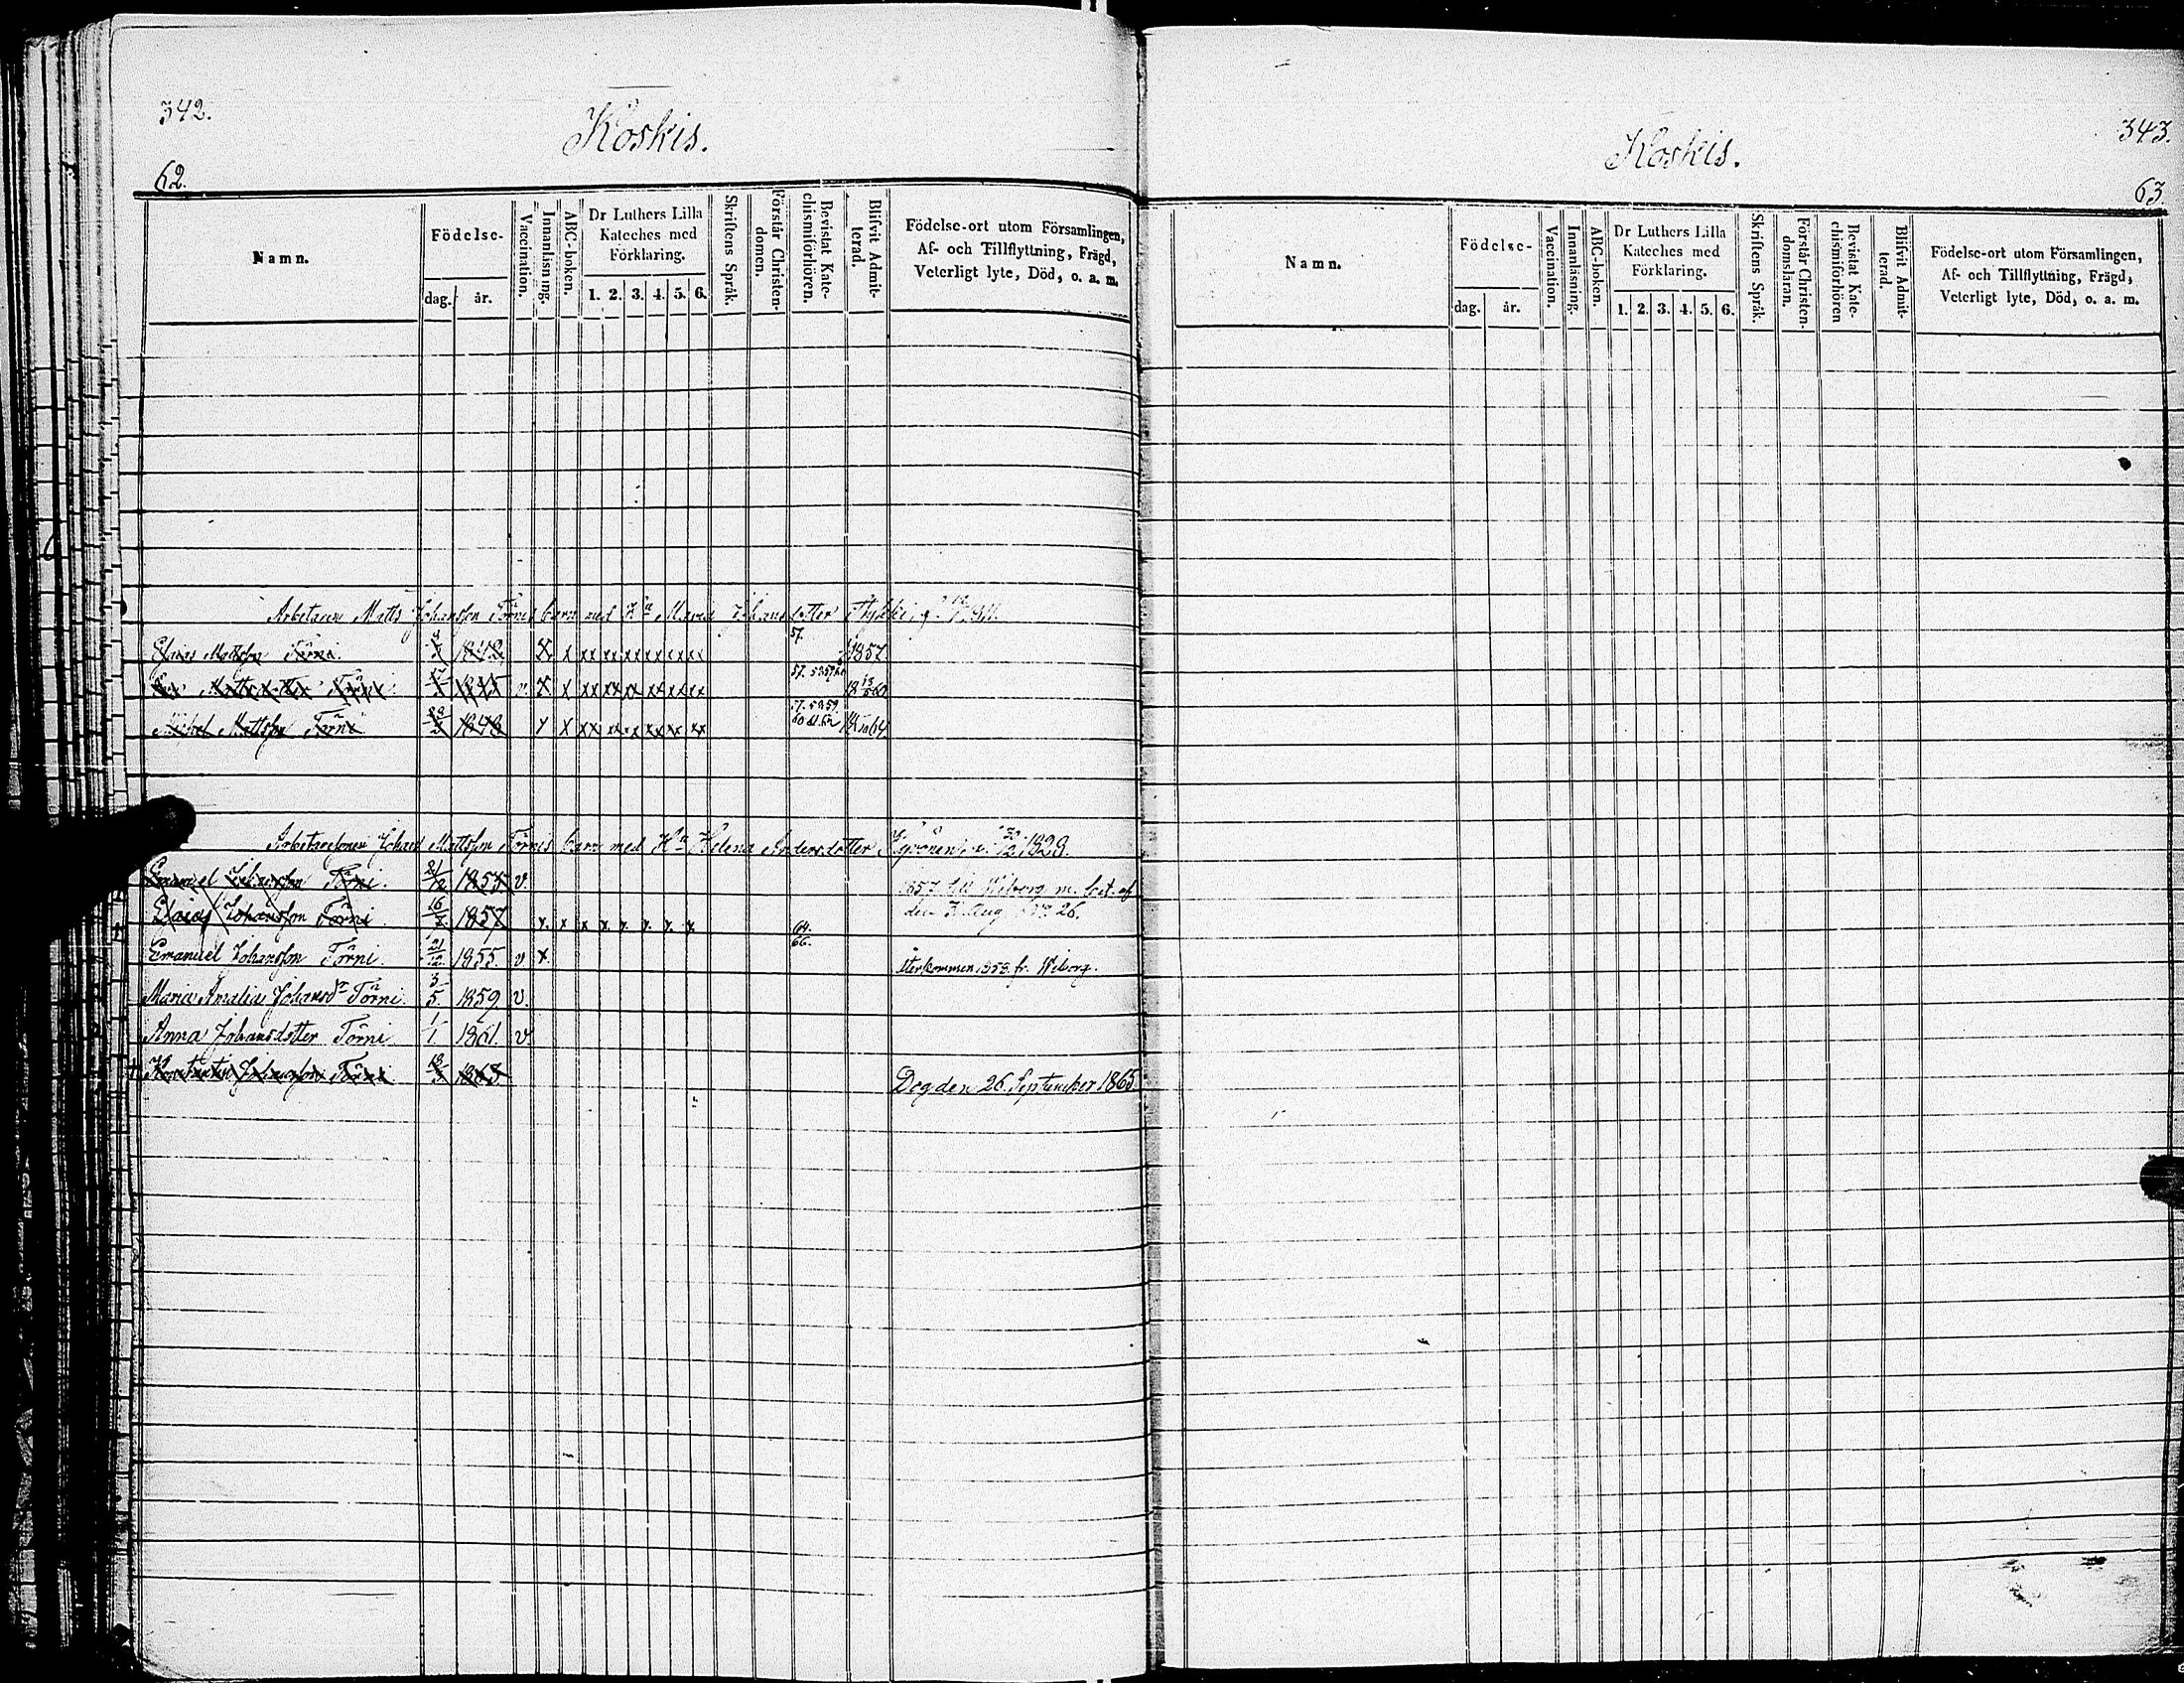 342.
Koskis.
62.
Namn.
Födelse-
dag. år.
Vaccination.
Innanläsning.
ABC-boken.
Dr Luthers Lilla
Kateches med
Förklaring.
1. 2. 3. 4. 5. 6.
Skriftens Språk.
Förstår Christen-
domen.
Bevistat Kate-
chismiförhören.
Blifvit Admit-
terad.
Födelse-ort utom Församlingen,
Af- och Tillflyttning, Frägd,
Veterligt lyte, Död, o. a. m.
Arbetaren Matts Johansson Törnis barn med Hu Maria Johansdotter
Esaias Mattsson Törni. 1842 X x xx xx xx xx xx xx 57. 1857
Mattsdotter Törni 1845 v. X x xx xx xx xx xx xx
Michel Mattsson Törni 1848 x x xx xx xx xx xx xx
Arbetaresonen Johan Mattsson Törnis barn med Hu Helena Andersdotter 1828.
Emanuel Johansson Törni. 21/12 1855 v. 1857 till Wiborg m. bet. af
den 3 Aug
Esaias Johansson Törni 16/7 1857 x. x x x x. x. x. x. 64.
66.
Emanuel Johansson Törni. 21/12 1855. v x. återkommen 1858 fr. Wiborg.
Maria Amalia Johansdr Törni. 3/5. 1859. v.
Anna Johansdotter Törni 1/1 1861. v
Konstantin Johansson Törni 1865 Dog den 26. September 1865
343.
Koskis.
63
Namn.
Födelse-
dag. år.
Vaccination.
Innanläsning.
ABC-boken.
Dr Luthers Lilla
Kateches med
Förklaring.
1. 2. 3. 4. 5. 6.
Skriftens Språk.
Förstår Christen-
domsläran.
Bevistat Kate-
chismiförhören
Blifvit Admit-
terad.
Födelse-ort utom Församlingen,
Af- och Tillflyttning, Frägd,
Veterligt lyte, Död, o. a. m.